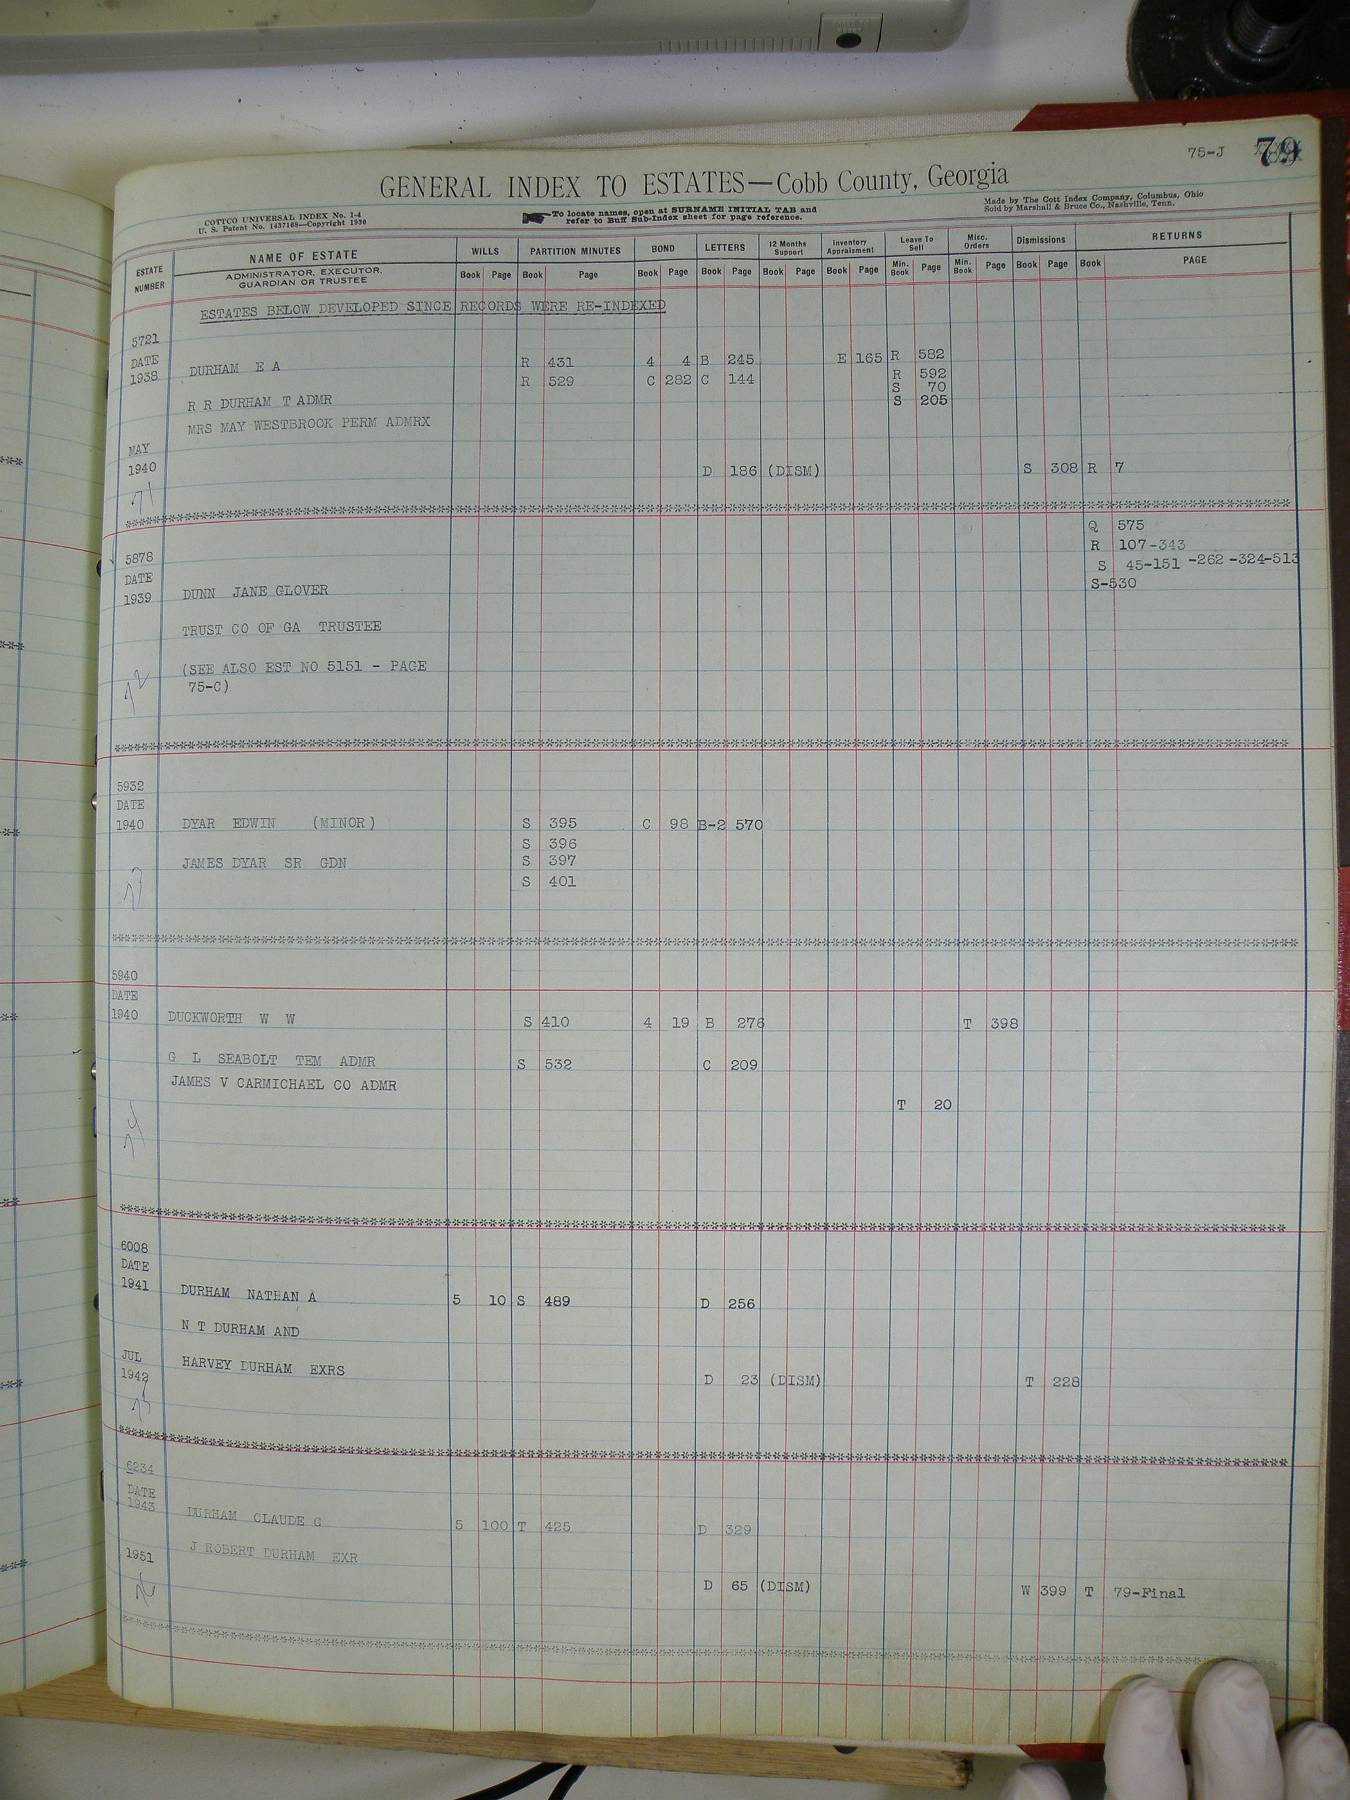 75-J 79
GENERAL INDEX TO ESTATES—Cobb County, Georgia
COTTCO UNIVERSAL INDEX No. 1-4
U. S. Patent No. 1437168—Copyright 1930
To locate names, open at SURNAME INITIAL TAB and
refer to Buff Sub-Index sheet for page reference.
Made by The Cott Index Company, Columbus, Ohio
Sold by Marshall & Bruce Co., Nashville, Tenn.
ESTATE NUMBER NAME OF ESTATE WILLS PARTITION MINUTES BOND LETTERS 12 Months Support Inventory Appraisment Leave To Sell Misc. Orders Dismissions RETURNS
ADMINISTRATOR, EXECUTOR, GUARDIAN OR TRUSTEE Book Page Book Page Book Page Book Page Book Page Book Page Min. Book Page Min. Book Page Book Page Book PAGE
ESTATES BELOW DEVELOPED SINCE RECORDS WERE RE-INDEXED
5721
DATE DURHAM E A R 431 4 4 B 245 E 165 R 582
1938 R 529 C 282 C 144 R 592
S 70
R R DURHAM T ADMR S 205
MRS MAY WESTBROOK PERM ADMRX
MAY
1940 D 186 (DISM) S 308 R 7
71
Q 575
R 107-343
5878 S 45-151 -262 -324-513
DATE S-530
1939 DUNN JANE GLOVER
TRUST CO OF GA TRUSTEE
(SEE ALSO EST NO 5151 - PAGE
75-C)
72
5932
DATE
1940 DYAR EDWIN (MINOR) S 395 C 98 B-2 570
S 396
JAMES DYAR SR GDN S 397
S 401
73
5940
DATE
1940 DUCKWORTH W W S 410 4 19 B 276 T 398
G L SEABOLT TEM ADMR S 532 C 209
JAMES V CARMICHAEL CO ADMR
T 20
74
6008
DATE
1941 DURHAM NATHAN A 5 10 S 489 D 256
N T DURHAM AND
JUL HARVEY DURHAM EXRS
1942 D 23 (DISM) T 228
75
6234
DATE
1943 DURHAM CLAUDE G 5 100 T 425 D 329
J ROBERT DURHAM EXR
1951
D 65 (DISM) W 399 T 79-Final